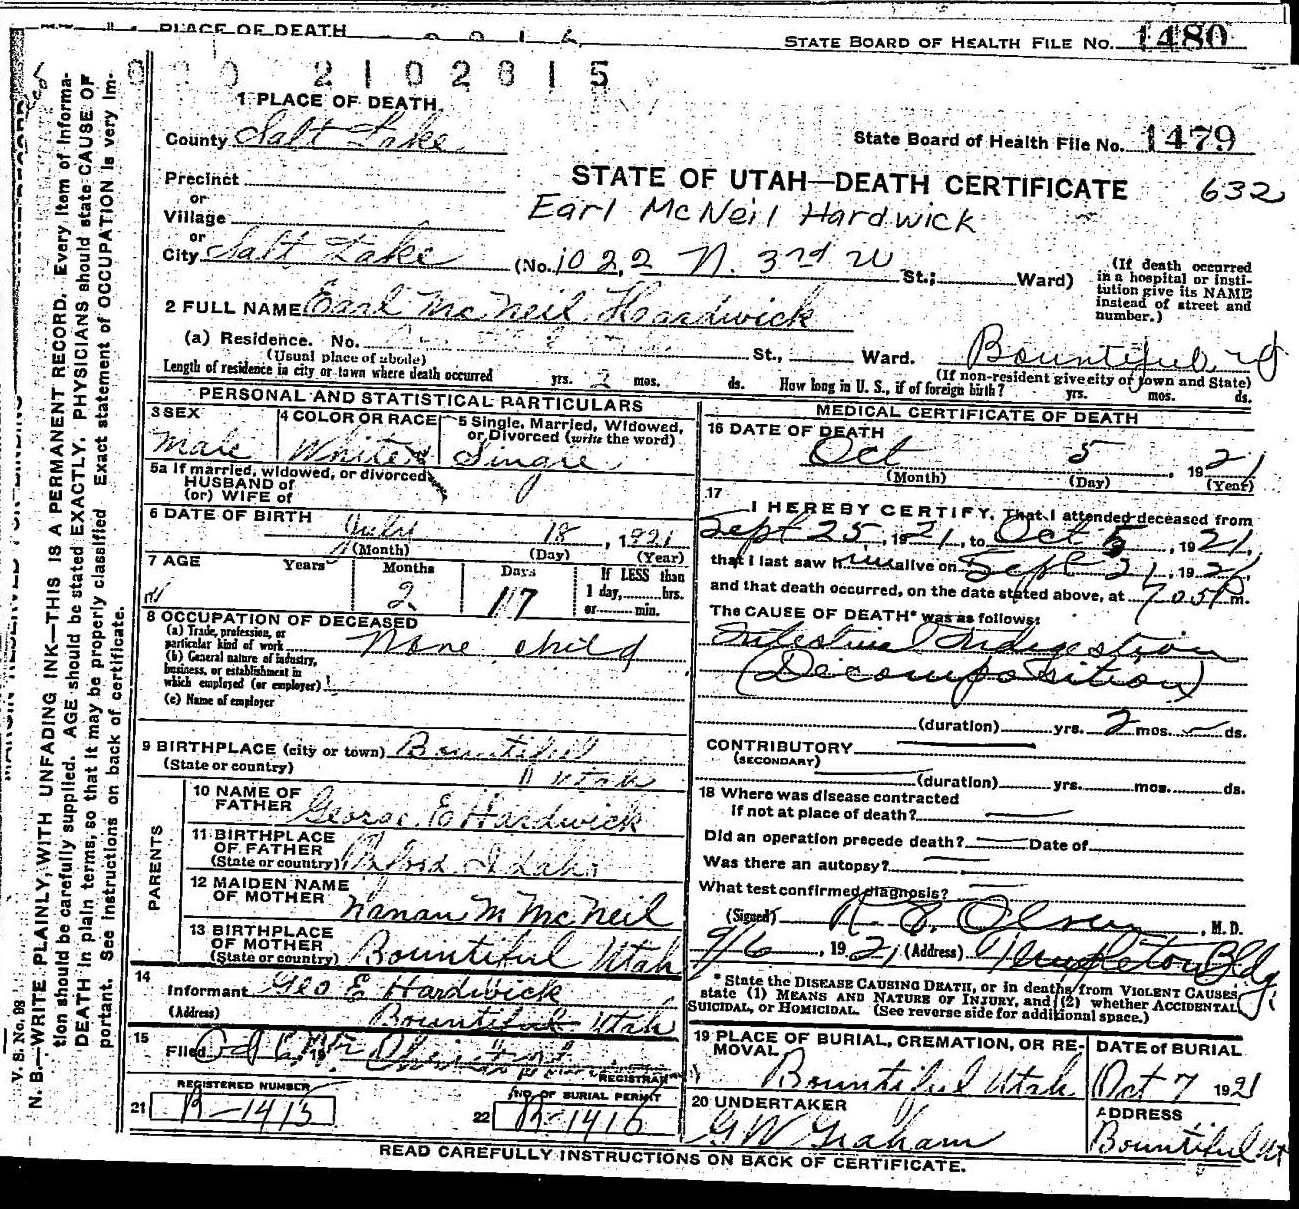 PLACE OF DEATH
STATE BOARD OF HEALTH FILE NO. 1480
2102615
1 PLACE OF DEATH
County Salt Lake
State Board of Health File No. 1479
Precinct
or
Village
or
City Salt Lake
STATE OF UTAH—DEATH CERTIFICATE 632
Earl McNeil Hardwick
(No. 1022 N. 3rd W St.; Ward)
(If death occurred in a hospital or institution give its NAME instead of street and number.)
2 FULL NAME Earl McNeil Hardwick
(a) Residence. No. St., Ward. Bountiful
(Usual place of abode)
(If non-resident give city or town and State)
Length of residence in city or town where death occurred yrs. 2 mos. ds. How long in U. S., if of foreign birth? yrs. mos. ds.
PERSONAL AND STATISTICAL PARTICULARS
3 SEX
Male
4 COLOR OR RACE
White
5 Single, Married, Widowed, or Divorced (write the word)
Single
5a If married, widowed, or divorced
HUSBAND of
(or) WIFE of
6 DATE OF BIRTH
July 18, 1921
(Month) (Day) (Year)
7 AGE Years Months Days If LESS than
1 day, hrs.
or min.
2 17
8 OCCUPATION OF DECEASED
(a) Trade, profession, or
particular kind of work None child
(b) General nature of industry,
business, or establishment in
which employed (or employer)
(c) Name of employer
9 BIRTHPLACE (city or town) Bountiful
(State or country) Utah
PARENTS
10 NAME OF
FATHER George E Hardwick
11 BIRTHPLACE
OF FATHER
(State or country) Idaho
12 MAIDEN NAME
OF MOTHER M McNeil
13 BIRTHPLACE
OF MOTHER
(State or country) Bountiful Utah
14
Informant Geo E Hardwick
(Address) Bountiful Utah
15
Filed Oct
REGISTRAR
REGISTERED NUMBER
21 B-1415
NO. OF BURIAL PERMIT
22 B-1416
MEDICAL CERTIFICATE OF DEATH
16 DATE OF DEATH
Oct 5, 1921
(Month) (Day) (Year)
17
I HEREBY CERTIFY, That I attended deceased from
Sept 25, 1921, to Oct 5, 1921,
that I last saw him alive on Sept 21, 1921,
and that death occurred, on the date stated above, at 705P m.
The CAUSE OF DEATH* was as follows:
Intestinal Indigestion
(Decomposition)
(duration) yrs. 2 mos. ds.
CONTRIBUTORY
(SECONDARY)
(duration) yrs. mos. ds.
18 Where was disease contracted
if not at place of death?
Did an operation precede death? Date of
Was there an autopsy?
What test confirmed diagnosis?
(Signed) Olsen, M.D.
9/6, 1921 (Address) Templeton Bldg.
* State the DISEASE CAUSING DEATH, or in deaths from VIOLENT CAUSES,
state (1) MEANS AND NATURE OF INJURY, and (2) whether ACCIDENTAL,
SUICIDAL, or HOMICIDAL. (See reverse side for additional space.)
19 PLACE OF BURIAL, CREMATION, OR REMOVAL
Bountiful Utah
DATE of BURIAL
Oct 7 1921
20 UNDERTAKER
G W Graham
ADDRESS
Bountiful Ut
READ CAREFULLY INSTRUCTIONS ON BACK OF CERTIFICATE.
V. S. No. 98
N. B.—WRITE PLAINLY, WITH UNFADING INK—THIS IS A PERMANENT RECORD. Every item of information should be carefully supplied. AGE should be stated EXACTLY. PHYSICIANS should state CAUSE OF DEATH in plain terms, so that it may be properly classified. Exact statement of OCCUPATION is very important. See instructions on back of certificate.